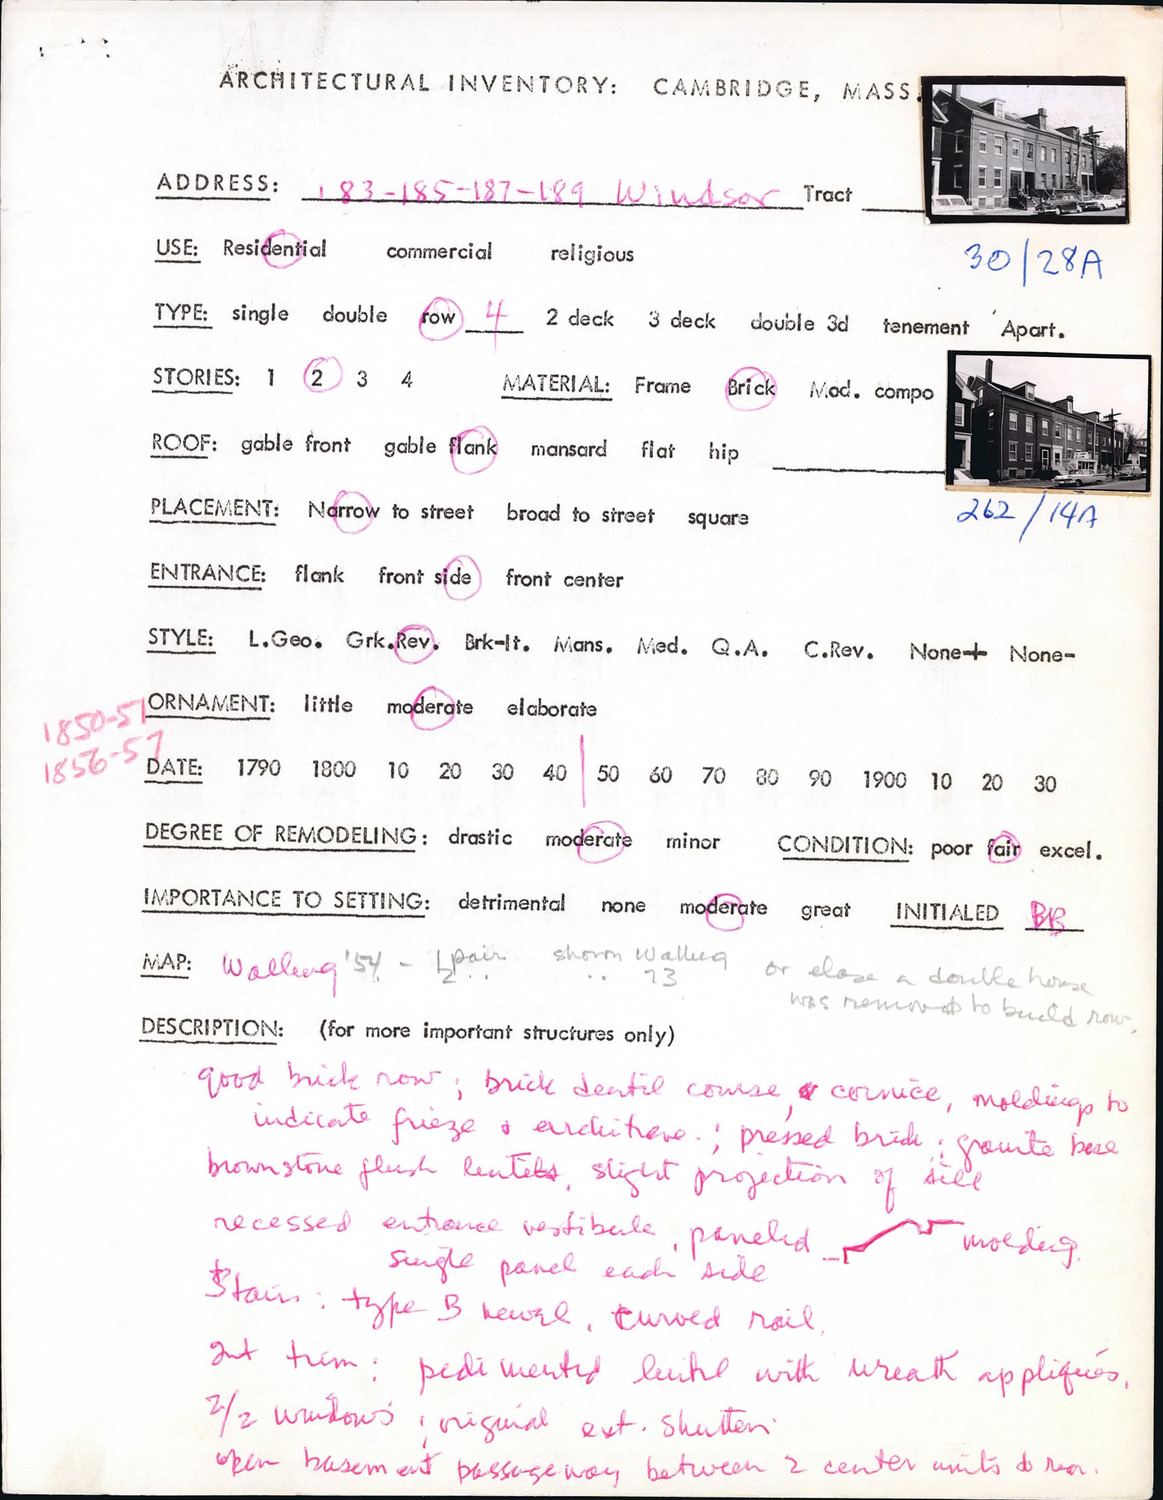 ARCHITECTURAL INVENTORY: CAMBRIDGE, MASS.
ADDRESS: 183-185-187-189 Windsor Tract
30/28A
USE: Residential commercial religious
TYPE: single double row 4 2 deck 3 deck double 3d tenement Apart.
STORIES: 1 2 3 4 MATERIAL: Frame Brick Mod. compo
ROOF: gable front gable flank mansard flat hip
262/14A
PLACEMENT: Narrow to street broad to street square
ENTRANCE: flank front side front center
STYLE: L.Geo. Grk.Rev. Brk-It. Mans. Med. Q.A. C.Rev. None+ None-
ORNAMENT: little moderate elaborate
1850-51
1856-57
DATE: 1790 1800 10 20 30 40 50 60 70 80 90 1900 10 20 30
DEGREE OF REMODELING: drastic moderate minor CONDITION: poor fair excel.
IMPORTANCE TO SETTING: detrimental none moderate great INITIALED BB
MAP: Walling '54 - pair shown Walling or else a double house
2 " " 73 was removed to build row.
DESCRIPTION: (for more important structures only)
good brick row; brick dentil course, cornice, moldings to
indicate frieze & architrave.; pressed brick; granite base
brownstone flush lintels, slight projection of sill
recessed entrance vestibule, paneled molding.
single panel each side
Stairs: type B newel, curved rail.
Int trim: pedimented lintel with wreath appliqués.
2/2 windows; original ext. shutters
open basement passageway between 2 center units to rear.